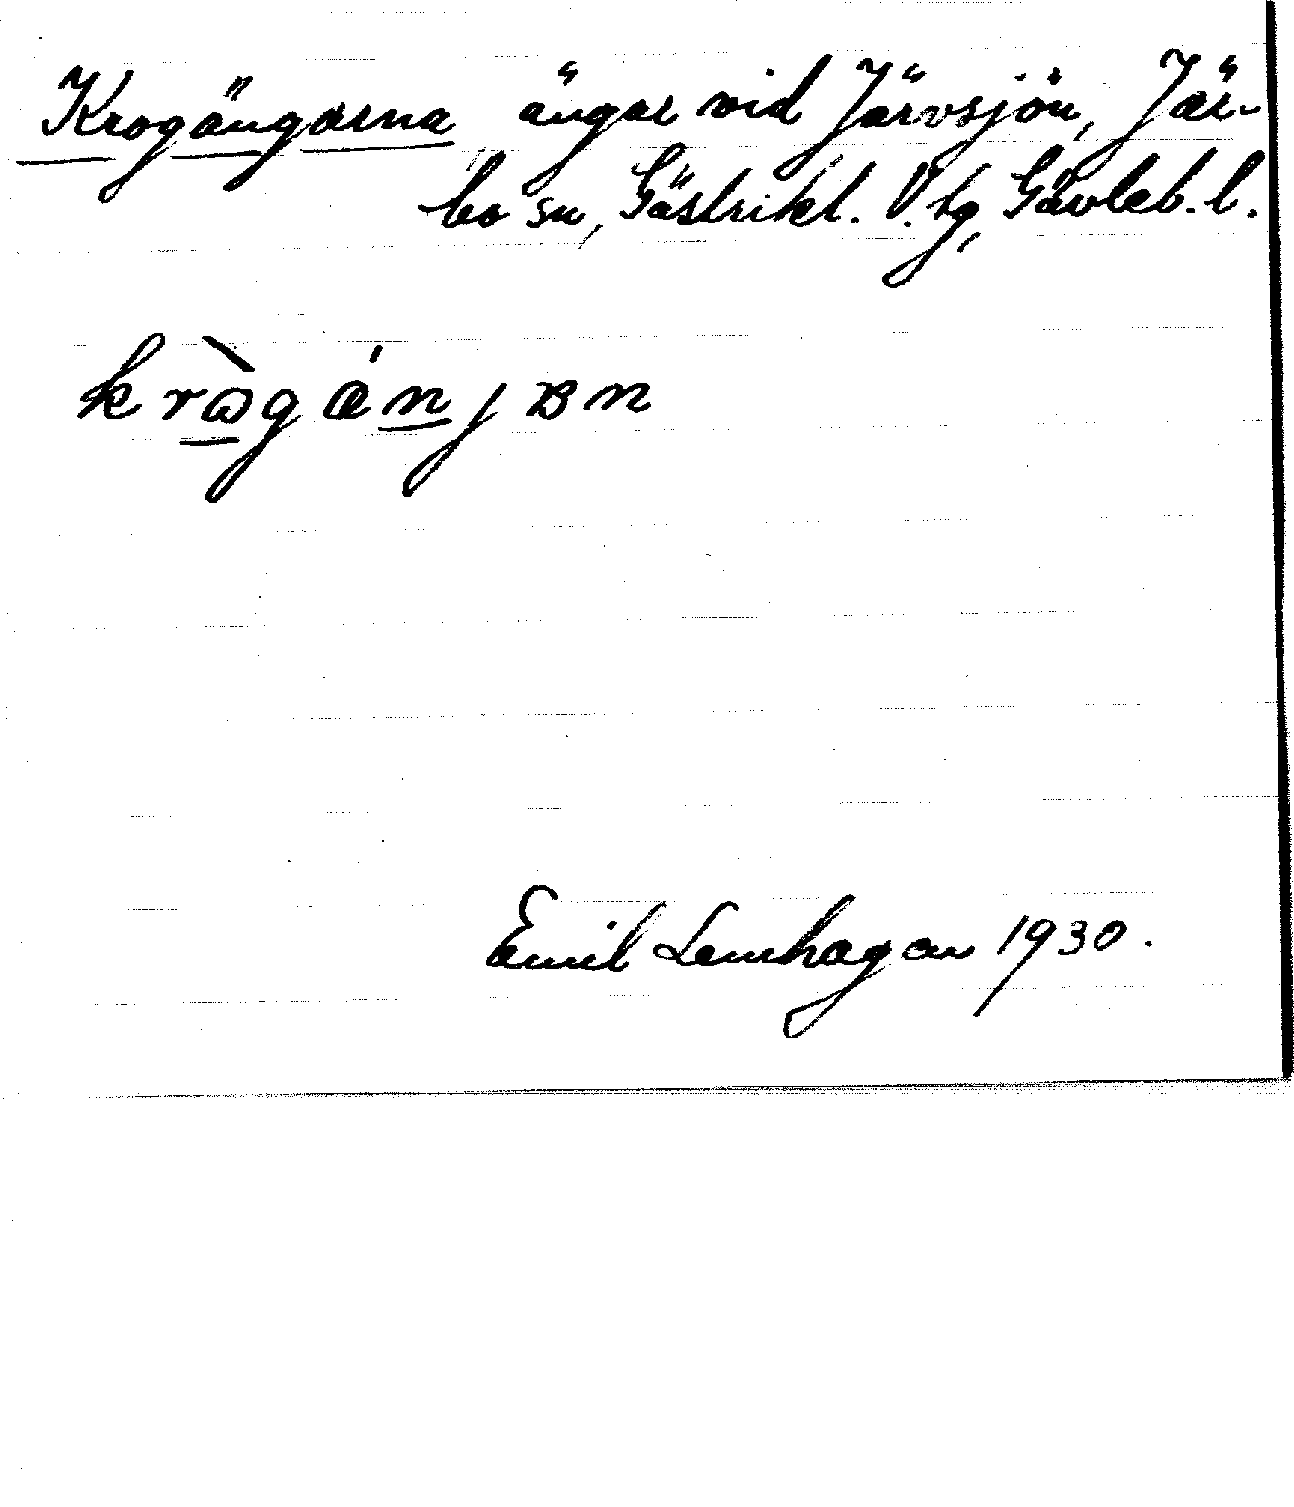 Krogängarna ängar vid Järvsjön, Jär-
bo sn, Gästrikl. V. tg, Gävleb. l.
kròg ä́njɐn
Emil Lenhagen 1930.